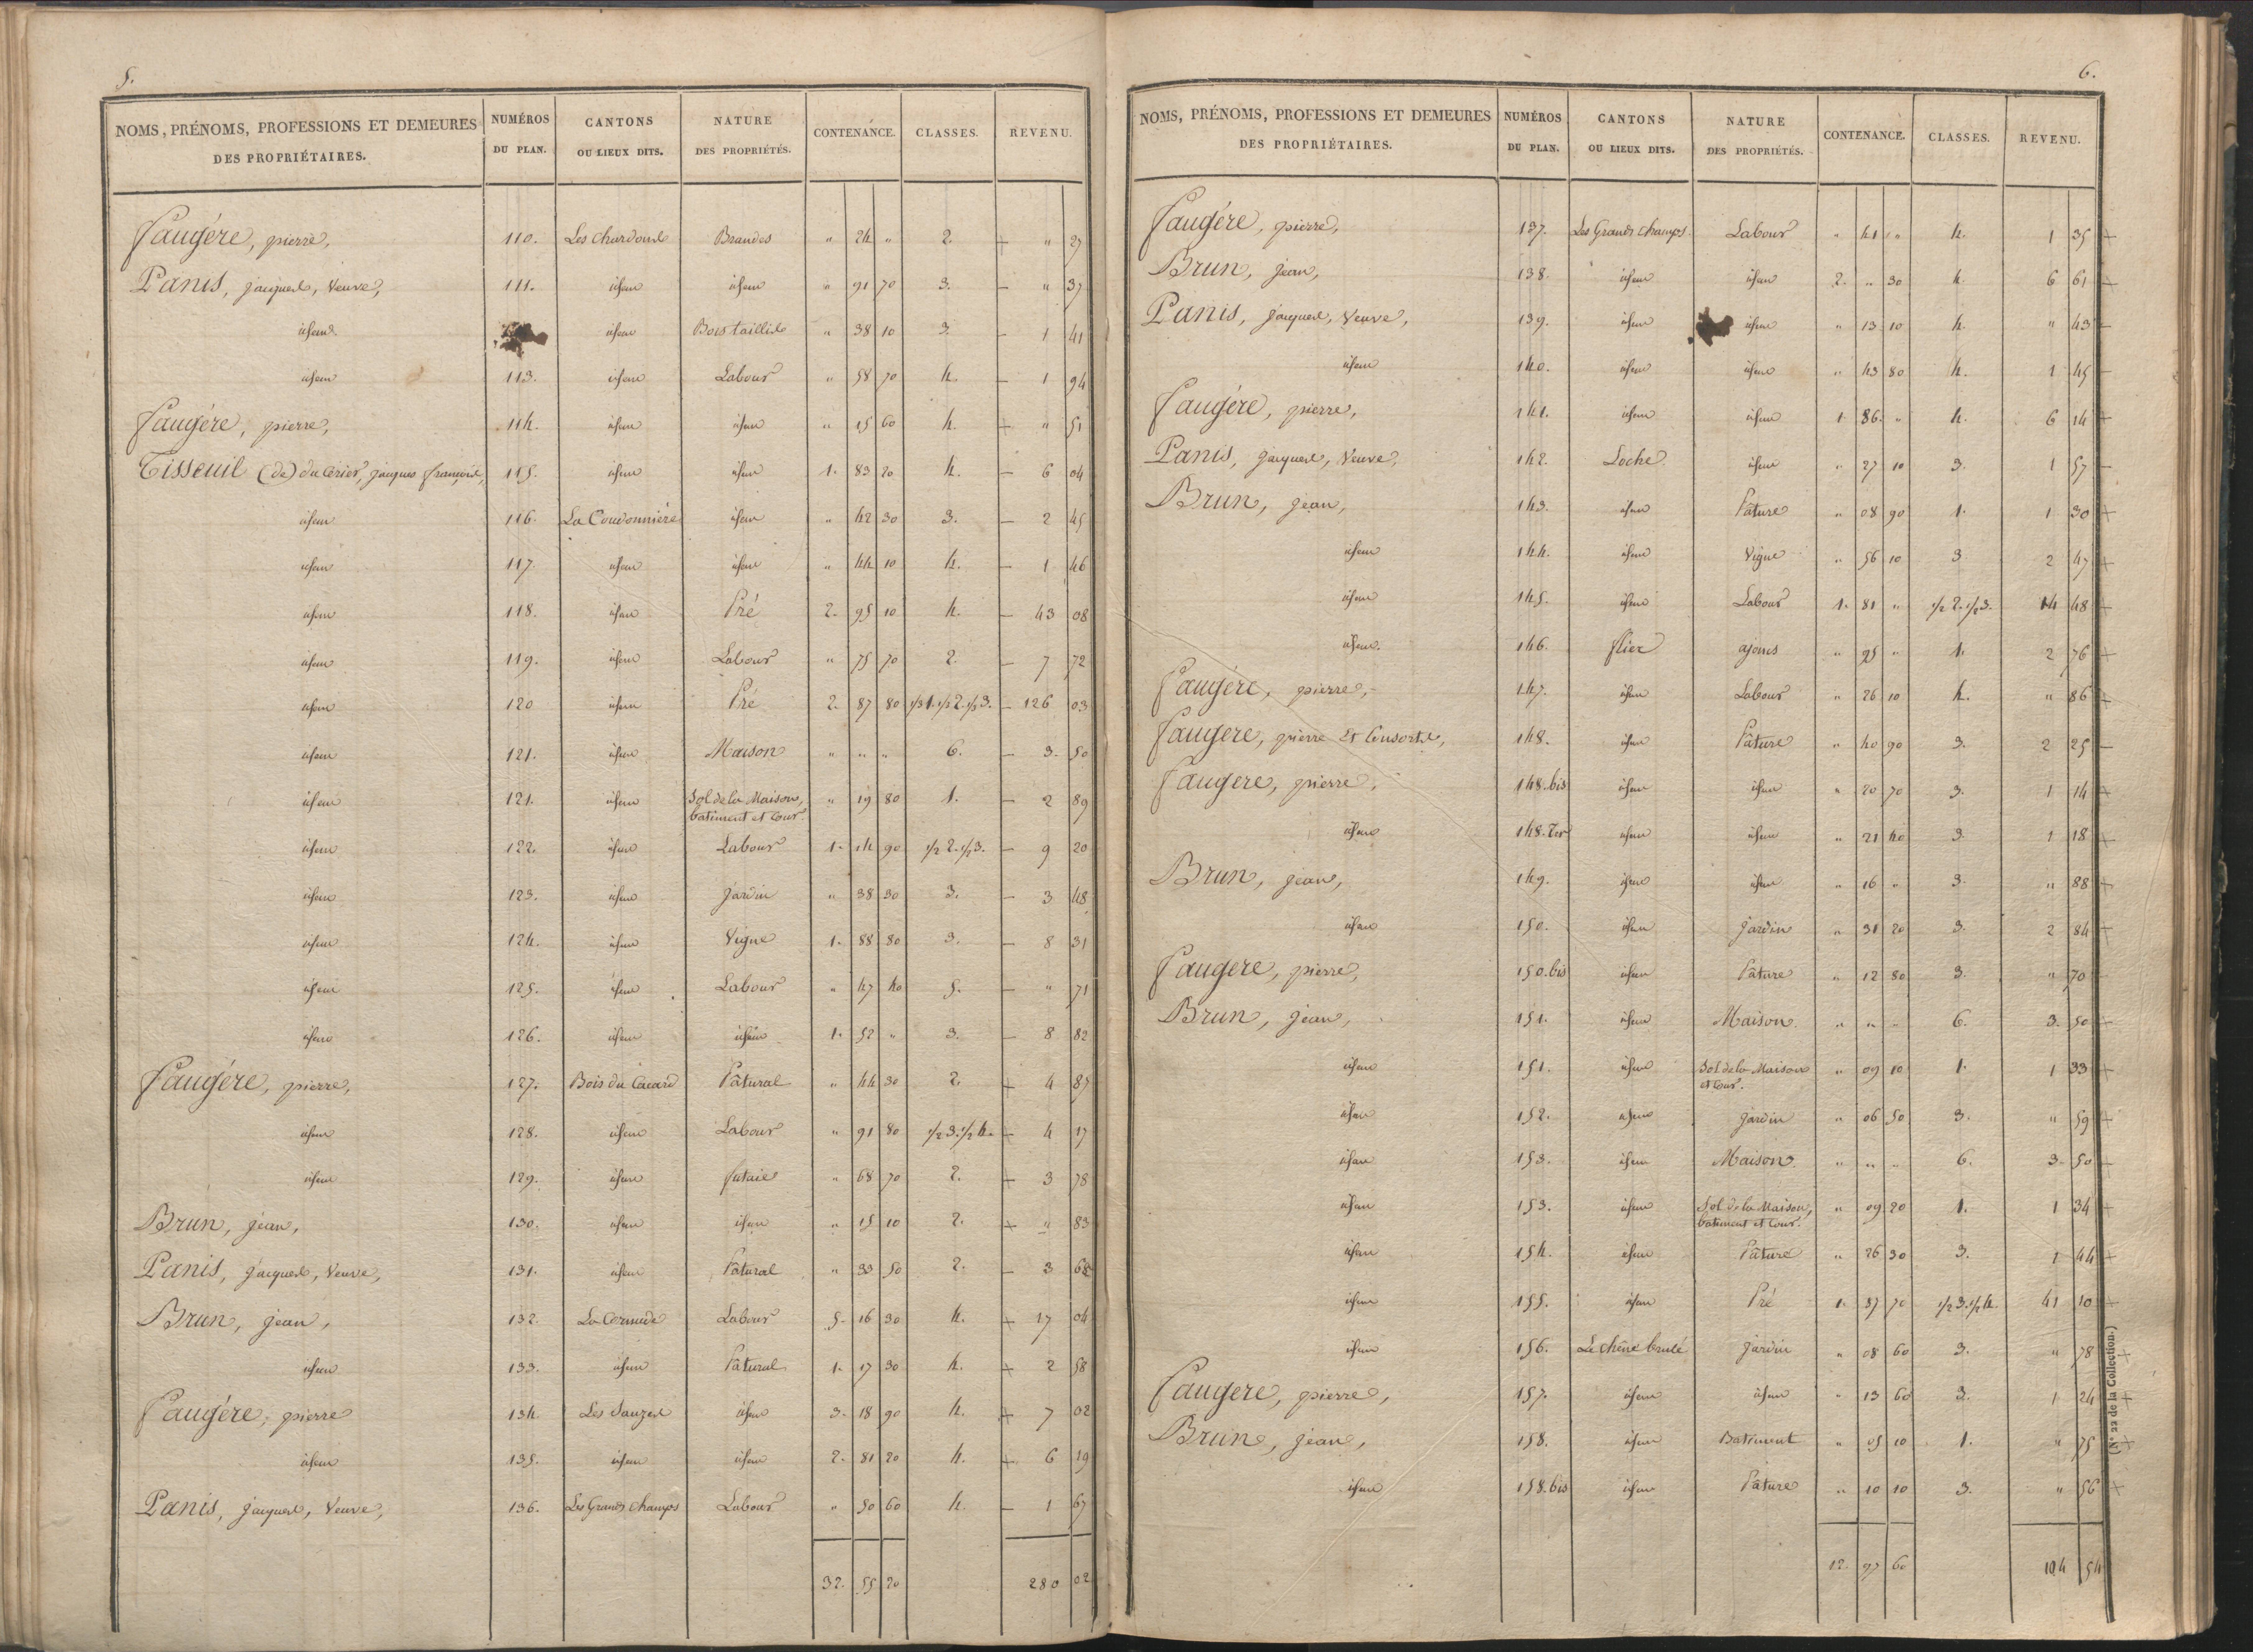 5.
NOMS, PRÉNOMS, PROFESSIONS ET DEMEURES DES PROPRIÉTAIRES. NUMÉROS DU PLAN. CANTONS OU LIEUX DITS. NATURE DES PROPRIÉTÉS. CONTENANCE. CLASSES. REVENU.
Faugére, pierre, 110. Les Chardouds Brandes " 24 " 2. + " 27
Panis, jacques, Veuve, 111. idem idem " 91 70 3. — " 37
idem idem Bois taillis " 38 10 3. — 1 41
idem 113. idem Labour " 58 70 4. — 1 94
Faugére, pierre, 114. idem idem " 15 60 4. + " 51
Tisseuil (de) du Cérier, jacques françois, 115. idem idem 1. 83 20 4. — 6 04
idem 116. La Coudonnière idem " 42 30 3. — 2 45
idem 117 idem idem " 44 10 4. — 1 46
idem 118. idem Pré 2. 95 10 4. — 43 08
idem 119. idem Labour " 75 70 2. — 7 72
idem 120 idem Pré 2. 87 80 1/3 1. 1/3 2. 1/3 3. — 126 03
idem 121. idem Maison " " " 6. — 3. 50
idem 121. idem Sol de la Maison, batiment et Cour. " 19 80 1. — 2 89
idem 122. idem Labour 1. 14 90 1/2 2. 1/2 3. — 9 20
idem 123. idem jardin " 38 30 3. — 3 48
idem 124. idem Vigne 1. 88 80 3. — 8 31
idem 125. idem Labour " 47 40 5. — " 71
idem 126. idem idem 1. 52 " 3. — 8 82
Faugére, pierre, 127. Bois du Cacard Pâtural " 44 30 2. + 4 85
idem 128. idem Labour " 91 80 1/2 3. 1/2 4. + 4 17
idem 129. idem futaie " 68 70 2. + 3 78
Brun, jean, 130. idem idem " 15 10 2. + " 83
Panis, jacques, Veuve, 131. idem Pâtural " 33 50 2. — 3 68
Brun, jean, 132. La Cormude Labour 5. 16 30 4. + 17 04
idem 133. idem Pâtural 1. 17 30 4. + 2 58
Faugére, pierre 134 Les Sauzes idem 3. 18 90 4. + 7 02
idem 135. idem idem 2. 81 20 4. + 6 19
Panis, jacques, Veuve, 136. Les Grands Champs Labour " 50 60 4. — 1 67
32. 55 20 280 02
6.
NOMS, PRÉNOMS, PROFESSIONS ET DEMEURES DES PROPRIÉTAIRES. NUMÉROS DU PLAN. CANTONS OU LIEUX DITS. NATURE DES PROPRIÉTÉS. CONTENANCE. CLASSES. REVENU.
Faugére, pierre, 137. Les Grands Champs Labour " 41 " 4. 1 35 +
Brun, jean, 138. idem idem 2. " 30 4. 6 61 +
Panis, jacques, Veuve, 139. idem idem " 13 10 4. " 43 —
idem 140. idem idem " 43 80 4. 1 45 —
Faugére, pierre, 141. idem idem 1. 86. " 4. 6 14 +
Panis, jacques, Veuve, 142. Loche idem " 27 10 3. 1 57 —
Brun, jean, 143. idem Pâture " 08 90 1. 1 30 +
idem 144. idem Vigne " 56 10 3 2 47 +
idem 145. idem Labour 1. 81 " 1/2 2. 1/2 3. 14 48 +
idem. 146. flier ajoncs " 95 " 1. 2 76 +
Faugére, pierre, 147. idem Labour " 26 10 4. " 86 +
Faugere, pierre et Consorts, 148. idem Pâture " 40 90 3. 2 25 —
Faugere, pierre, 148. bis idem idem " 20 70 3. 1 14 +
idem 148. Ter idem idem " 21 40 3. 1 18 +
Brun, jean, 149. idem idem " 16 " 3. " 88 +
idem 150. idem jardin " 31 20 3. 2 84 +
Faugere, pierre, 150. bis idem Pâture " 12 80 3. " 70
Brun, jean, 151. idem Maison. " " " 6. 3. 50 +
idem 151. idem Sol de la Maison et Cour. " 09 10 1. 1 33 +
idem 152. idem jardin " 06 50 3. " 59 +
idem 153. idem Maison. " " " 6. 3. 50 +
idem 153. idem Sol de la Maison, batiment et Cour. " 09 20 1. 1 34 +
idem 154. idem Pâture " 26 30 3. 1 44 +
idem 155. idem Pré 1. 87 70 1/2 3. 1/2 4. 41 10 +
idem 156. Le chêne brulé jardin " 08 60 3. " 78 +
Faugere, pierre, 157. idem idem " 13 60 3. 1 24 +
Brun, jean, 158. idem Batiment " 05 10 1. " 75 +
idem 158. bis idem Pâture " 10 10 3. " 56 +
12. 97 60 104 54
(N° 22 de la Collection.)